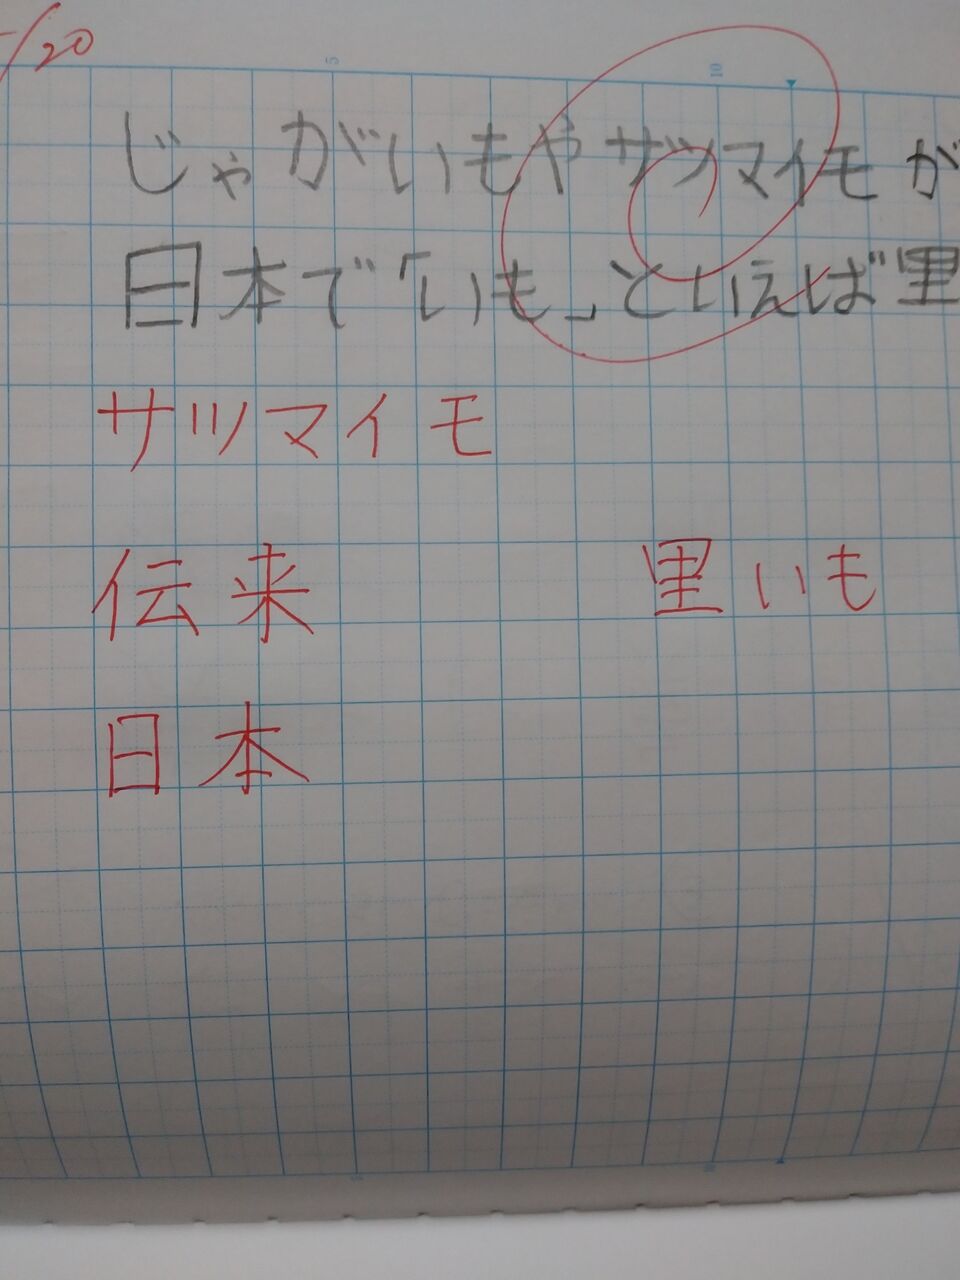 /20
5 10
じゃがいもやサツマイモが
日本で「いも」といえば里
サツマイモ
伝来 里いも
日本